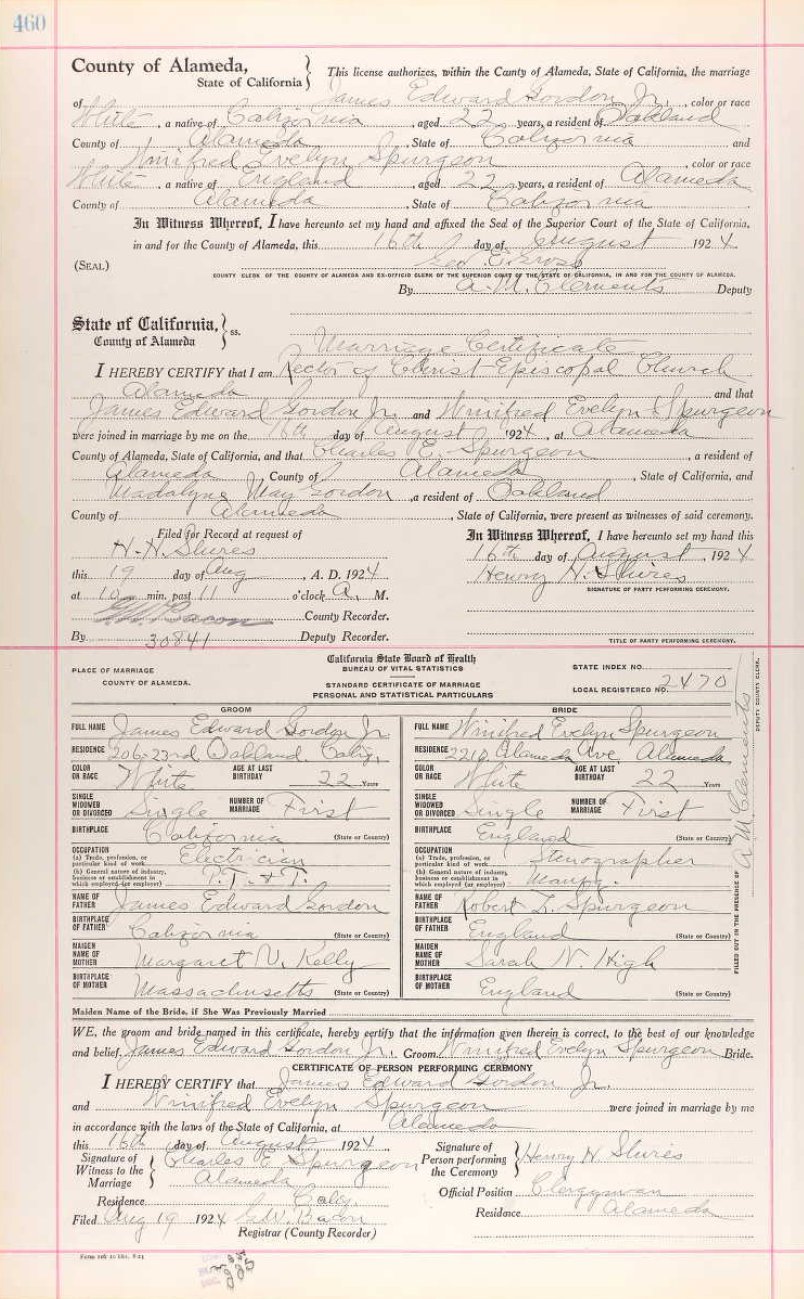 460
County of Alameda,
State of California
This license authorizes, within the County of Alameda, State of California, the marriage
of James Edward Gordon Jr., color or race
White, a native of California, aged 22 years, a resident of Oakland
County of Alameda, State of California and
Winifred Evelyn Spurgeon, color or race
White, a native of England, aged 22 years, a resident of Alameda
County of Alameda, State of California.
In Witness Whereof, I have hereunto set my hand and affixed the Seal of the Superior Court of the State of California,
in and for the County of Alameda, this 16th day of August 1924.
(SEAL) Geo. E. Gross
COUNTY CLERK OF THE COUNTY OF ALAMEDA AND EX-OFFICIO CLERK OF THE SUPERIOR COURT OF THE STATE OF CALIFORNIA, IN AND FOR THE COUNTY OF ALAMEDA.
By A. M. Clements Deputy
State of California,
County of Alameda
ss.
Marriage Certificate
I HEREBY CERTIFY that I am Rector of Christ Episcopal Church
Alameda and that
James Edward Gordon Jr. and Winifred Evelyn Spurgeon
were joined in marriage by me on the 16th day of August 1924, at Alameda
County of Alameda, State of California, and that Charles E. Spurgeon, a resident of
Alameda County of Alameda, State of California, and
Madalyne May Gordon, a resident of Oakland
County of Alameda, State of California, were present as witnesses of said ceremony.
Filed for Record at request of
H. H. Shires
this 19 day of Aug, A. D. 1924
at 10 min. past 11 o'clock A. M.
G. W. Bacon County Recorder.
By 30841 Deputy Recorder.
In Witness Whereof, I have hereunto set my hand this
16th day of August, 1924
Henry H. Shires
SIGNATURE OF PARTY PERFORMING CEREMONY.
TITLE OF PARTY PERFORMING CEREMONY.
PLACE OF MARRIAGE
COUNTY OF ALAMEDA.
California State Board of Health
BUREAU OF VITAL STATISTICS
STANDARD CERTIFICATE OF MARRIAGE
PERSONAL AND STATISTICAL PARTICULARS
STATE INDEX NO.
LOCAL REGISTERED NO. 2470
GROOM
FULL NAME James Edward Gordon Jr.
RESIDENCE 206-23rd Oakland Calif.
COLOR OR RACE White AGE AT LAST BIRTHDAY 22 Years
SINGLE WIDOWED OR DIVORCED Single NUMBER OF MARRIAGE First
BIRTHPLACE California (State or Country)
OCCUPATION
(a) Trade, profession, or particular kind of work Electrician
(b) General nature of industry, business or establishment in which employed (or employer) P. T. & T.
NAME OF FATHER James Edward Gordon
BIRTHPLACE OF FATHER California (State or Country)
MAIDEN NAME OF MOTHER Margaret V. Kelly
BIRTHPLACE OF MOTHER Massachusetts (State or Country)
BRIDE
FULL NAME Winifred Evelyn Spurgeon
RESIDENCE 2210 Alameda Ave. Alameda
COLOR OR RACE White AGE AT LAST BIRTHDAY 22 Years
SINGLE WIDOWED OR DIVORCED Single NUMBER OF MARRIAGE First
BIRTHPLACE England (State or Country)
OCCUPATION
(a) Trade, profession, or particular kind of work Stenographer
(b) General nature of industry, business or establishment in which employed (or employer) Manfg.
NAME OF FATHER Robert L. Spurgeon
BIRTHPLACE OF FATHER England (State or Country)
MAIDEN NAME OF MOTHER Sarah N. High
BIRTHPLACE OF MOTHER England (State or Country)
FILLED OUT IN THE PRESENCE OF A M Clements DEPUTY COUNTY CLERK.
Maiden Name of the Bride, if She Was Previously Married
WE, the groom and bride named in this certificate, hereby certify that the information given therein is correct, to the best of our knowledge
and belief. James Edward Gordon Jr. Groom. Winifred Evelyn Spurgeon Bride.
CERTIFICATE OF PERSON PERFORMING CEREMONY
I HEREBY CERTIFY that James Edward Gordon Jr.
and Winifred Evelyn Spurgeon were joined in marriage by me
in accordance with the laws of the State of California, at Alameda
this 16th day of August 1924
Signature of Witness to the Marriage Charles E Spurgeon
Alameda
Residence Calif.
Filed Aug 19 1924 G. W. Bacon
Registrar (County Recorder)
Signature of Person performing the Ceremony Henry H Shires
Official Position Clergyman
Residence Alameda